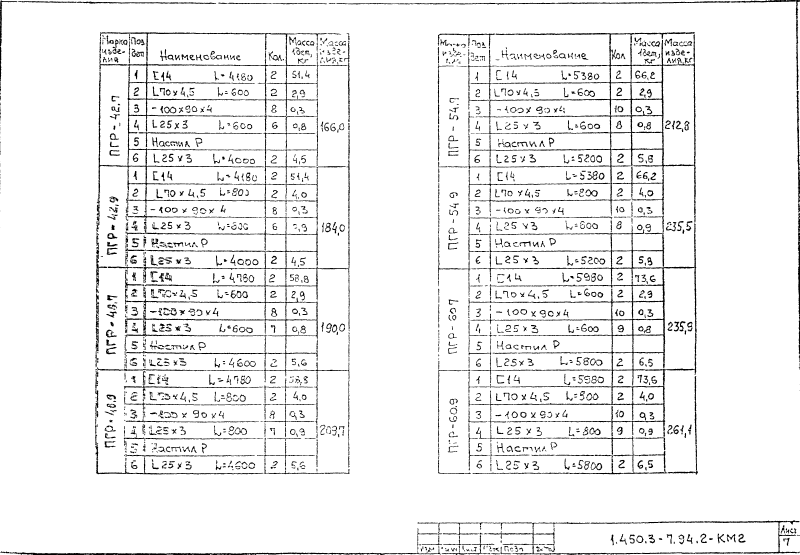 Марка изде-лия Поз. дет. Наименование Кол. Масса 1 дет., кг Масса изде-лия, кг
ПГР-42.7 166,0
1 [14 L=4180 2 51,4
2 L70×4,5 L=600 2 2,9
3 -100×90×4 8 0,3
4 L25×3 L=600 6 0,8
5 Настил Р
6 L25×3 L=4000 2 4,5
ПГР-42.9 184,0
1 [14 L=4180 2 51,4
2 L70×4,5 L=800 2 4,0
3 -100×90×4 8 0,3
4 L25×3 L=800 6 0,9
5 Настил Р
6 L25×3 L=4000 2 4,5
ПГР-48.7 190,0
1 [14 L=4780 2 58,8
2 L70×4,5 L=600 2 2,9
3 -100×90×4 8 0,3
4 L25×3 L=600 7 0,8
5 Настил Р
6 L25×3 L=4600 2 5,6
ПГР-48.9 209,7
1 [14 L=4780 2 58,8
2 L70×4,5 L=800 2 4,0
3 -100×90×4 8 0,3
4 L25×3 L=800 7 0,9
5 Настил Р
6 L25×3 L=4600 2 5,6
Марка изде-лия Поз. дет. Наименование Кол. Масса 1 дет., кг Масса изде-лия, кг
ПГР-54.7 212,8
1 [14 L=5380 2 66,2
2 L70×4,5 L=600 2 2,9
3 -100×90×4 10 0,3
4 L25×3 L=600 8 0,8
5 Настил Р
6 L25×3 L=5200 2 5,8
ПГР-54.9 235,5
1 [14 L=5380 2 66,2
2 L70×4,5 L=800 2 4,0
3 -100×90×4 10 0,3
4 L25×3 L=800 8 0,9
5 Настил Р
6 L25×3 L=5200 2 5,8
ПГР-60.7 235,9
1 [14 L=5980 2 73,6
2 L70×4,5 L=600 2 2,9
3 -100×90×4 10 0,3
4 L25×3 L=600 9 0,8
5 Настил Р
6 L25×3 L=5800 2 6,5
ПГР-60.9 261,1
1 [14 L=5980 2 73,6
2 L70×4,5 L=800 2 4,0
3 -100×90×4 10 0,3
4 L25×3 L=800 9 0,9
5 Настил Р
6 L25×3 L=5800 2 6,5
1.450.3-7.94.2-КМ2
Лист
7